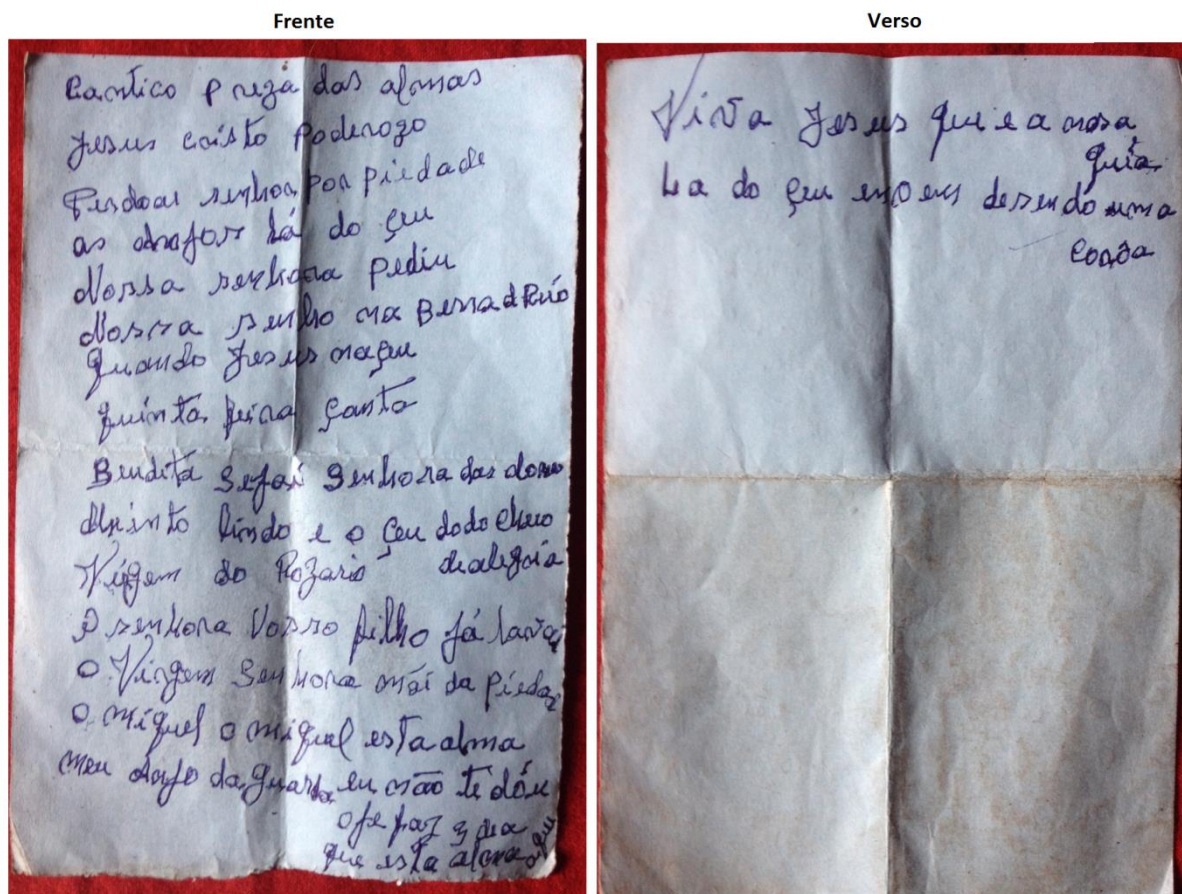 Frente
Cantico p reza das almas
Jesus cristo poderozo
Perdoai senhor por piedade
as anjos lá do çeu
Nossa senhora pediu
Nossa senho na Berra d Riio
quando Jesus naçeu
quinta feira çanta
Bendita Sejai Senhora das dores
Muinto lindo e o çeu dodo cheio
Virgem do Rozario de alegria
O senhora Vosso filho já
O Virgem Senhora mãi da piedade
O miguel o miguel esta alma
meu anjo da guarda eu não te dou
oje faz 3 dia
que esta alma
Verso
Viva Jesus que e a nosa
guia
La do çeu en vem desendo uma